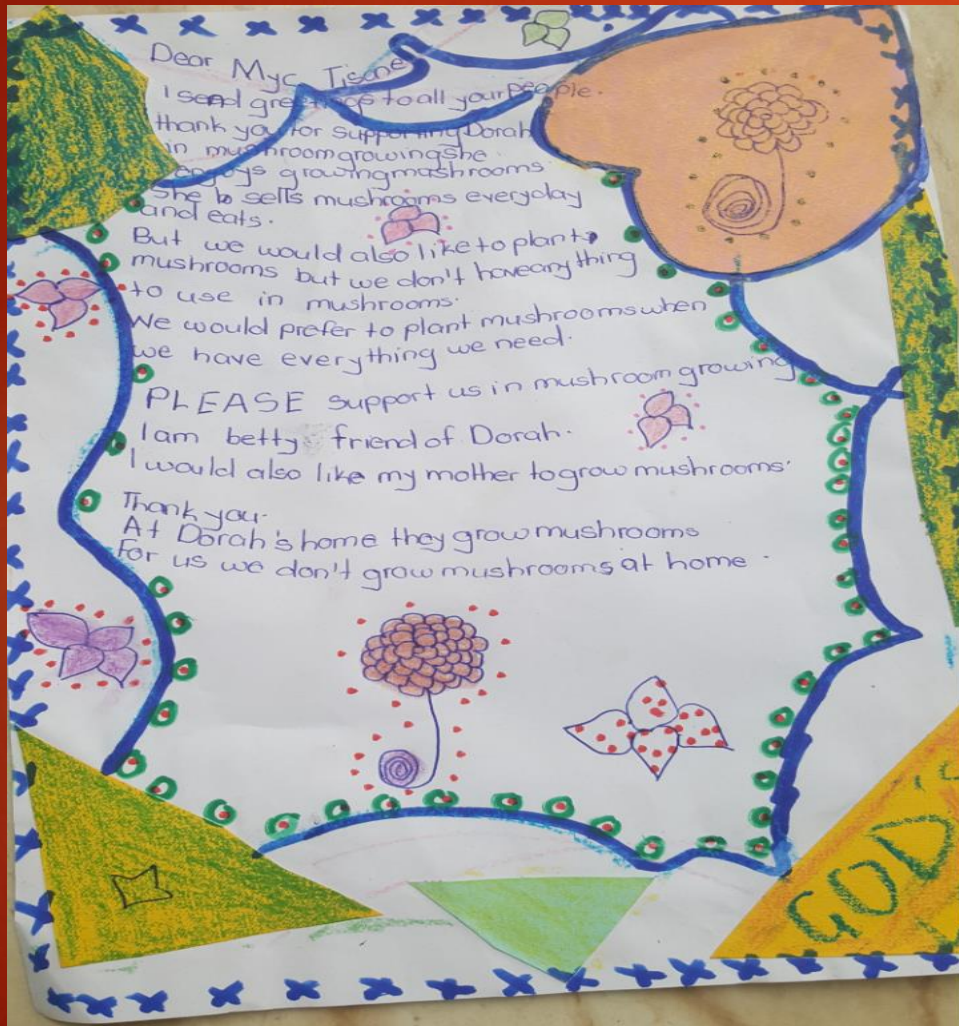 Dear Myc Tisone
I send greetings to all your people.
thank you for supporting Dorah
in mushroom growing she
enjoys growing mushrooms.
She b sells mushrooms everyday
and eats.
But we would also like to plant
mushrooms but we don't have anything
to use in mushrooms.
We would prefer to plant mushrooms when
we have everything we need.
PLEASE support us in mushroom growing
I am betty friend of Dorah.
I would also like my mother to grow mushrooms.
Thank you.
At Dorah's home they grow mushrooms
For us we don't grow mushrooms at home.
GOD'S